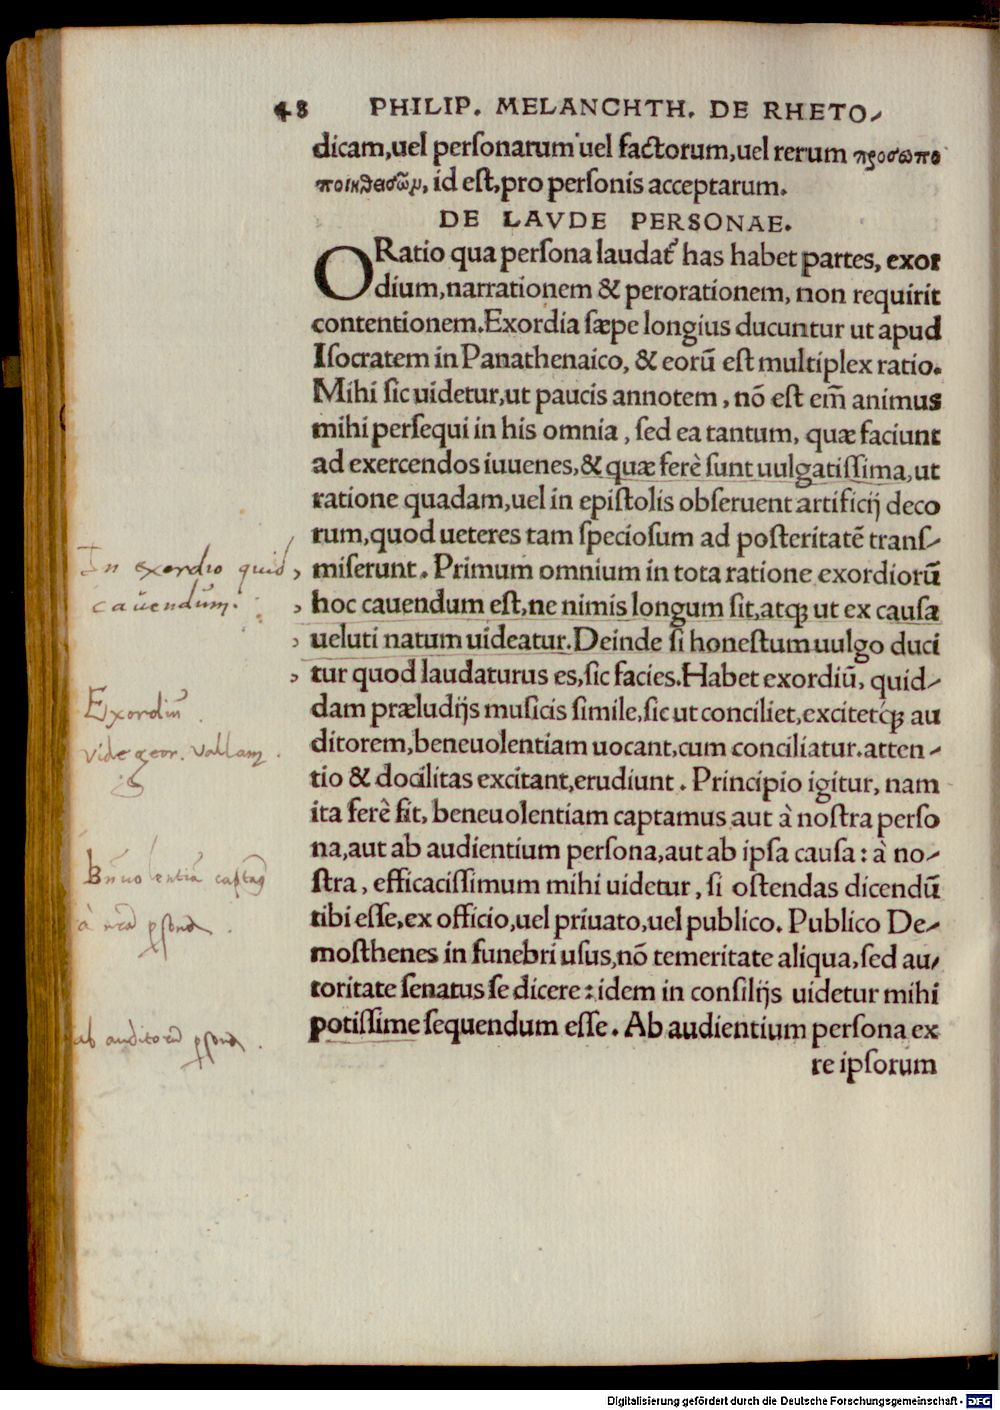 48 PHILIP. MELANCHTH. DE RHETO-
dicam,uel perſonarum uel factorum,uel rerum προσωπο
ποιηθεισῶν, id eſt,pro perſonis acceptarum.
DE LAVDE PERSONAE.
ORatio qua perſona laudat᷑ has habet partes, exor
dium,narrationem & perorationem, non requirit
contentionem.Exordia ſæpe longius ducuntur ut apud
Iſocratem in Panathenaico, & eorũ eſt multiplex ratio.
Mihi ſic uidetur,ut paucis annotem, nõ eſt em̃ animus
mihi perſequi in his omnia, ſed ea tantum, quæ faciunt
ad exercendos iuuenes,& quæ ferè ſunt uulgatiſſima,ut
ratione quadam,uel in epiſtolis obſeruent artificij deco
rum,quod ueteres tam ſpecioſum ad poſteritatẽ tranſ-
In exordio quid
cauendum.
miſerunt. Primum omnium in tota ratione exordiorũ
hoc cauendum eſt,ne nimis longum ſit,atqꝫ ut ex cauſa
ueluti natum uideatur.Deinde ſi honeſtum uulgo duci
tur quod laudaturus es,ſic facies.Habet exordiũ, quid-
Exordiũ.
vide geor. Vallam.
dam præludijs muſicis ſimile,ſic ut conciliet,excitetq́ꝫ au
ditorem,beneuolentiam uocant,cum conciliatur.atten-
tio & docilitas excitant,erudiunt. Principio igitur, nam
ita ferè fit, beneuolentiam captamus aut à noſtra perſo
na,aut ab audientium perſona,aut ab ipſa cauſa: à no-
à nr̃a ꝑſona.
ſtra, efficaciſſimum mihi uidetur, ſi oſtendas dicendũ
tibi eſſe,ex officio,uel priuato,uel publico. Publico De-
moſthenes in funebri uſus,nõ temeritate aliqua,ſed au-
toritate ſenatus ſe dicere: idem in conſilijs uidetur mihi
ab auditorũ ꝑſona.
potiſſime ſequendum eſſe. Ab audientium perſona ex
re ipſorum
Digitalisierung gefördert durch die Deutsche Forschungsgemeinschaft - DFG